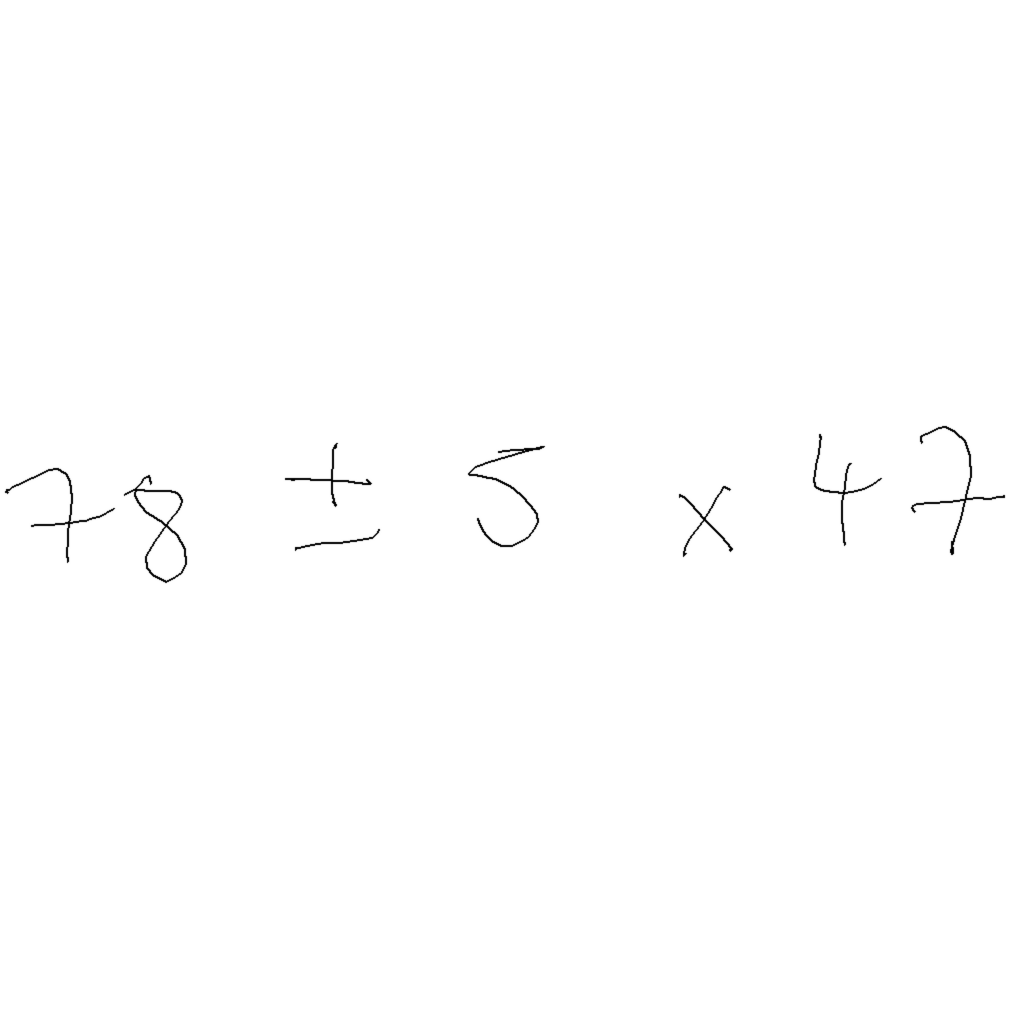 78 ± 5 × 47